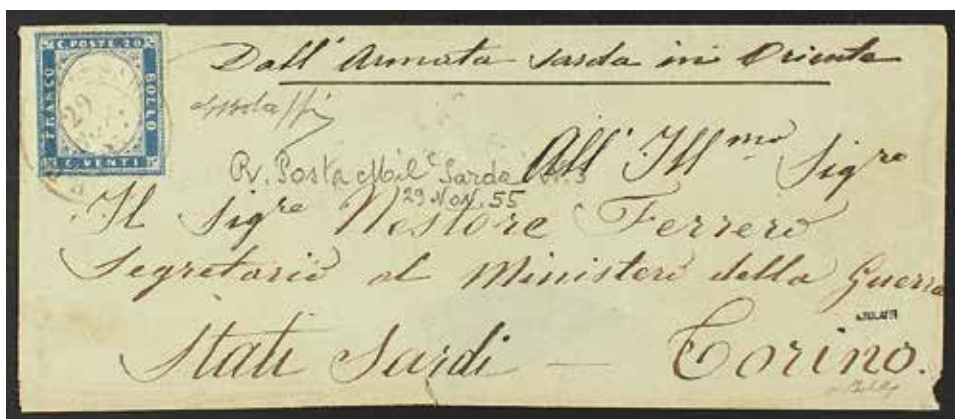 C. POSTE. 20
FRANCO
BOLLO
C. VENTI
29
Dall' Armata Sarda in Oriente
All' Ill.mo Sig.re
R. Posta Mil.e Sarda N. 3
29 Nov. 55
Il Sig.re Nestore Ferrero
Segretario al Ministero della Guerra
Stati Sardi — Torino.